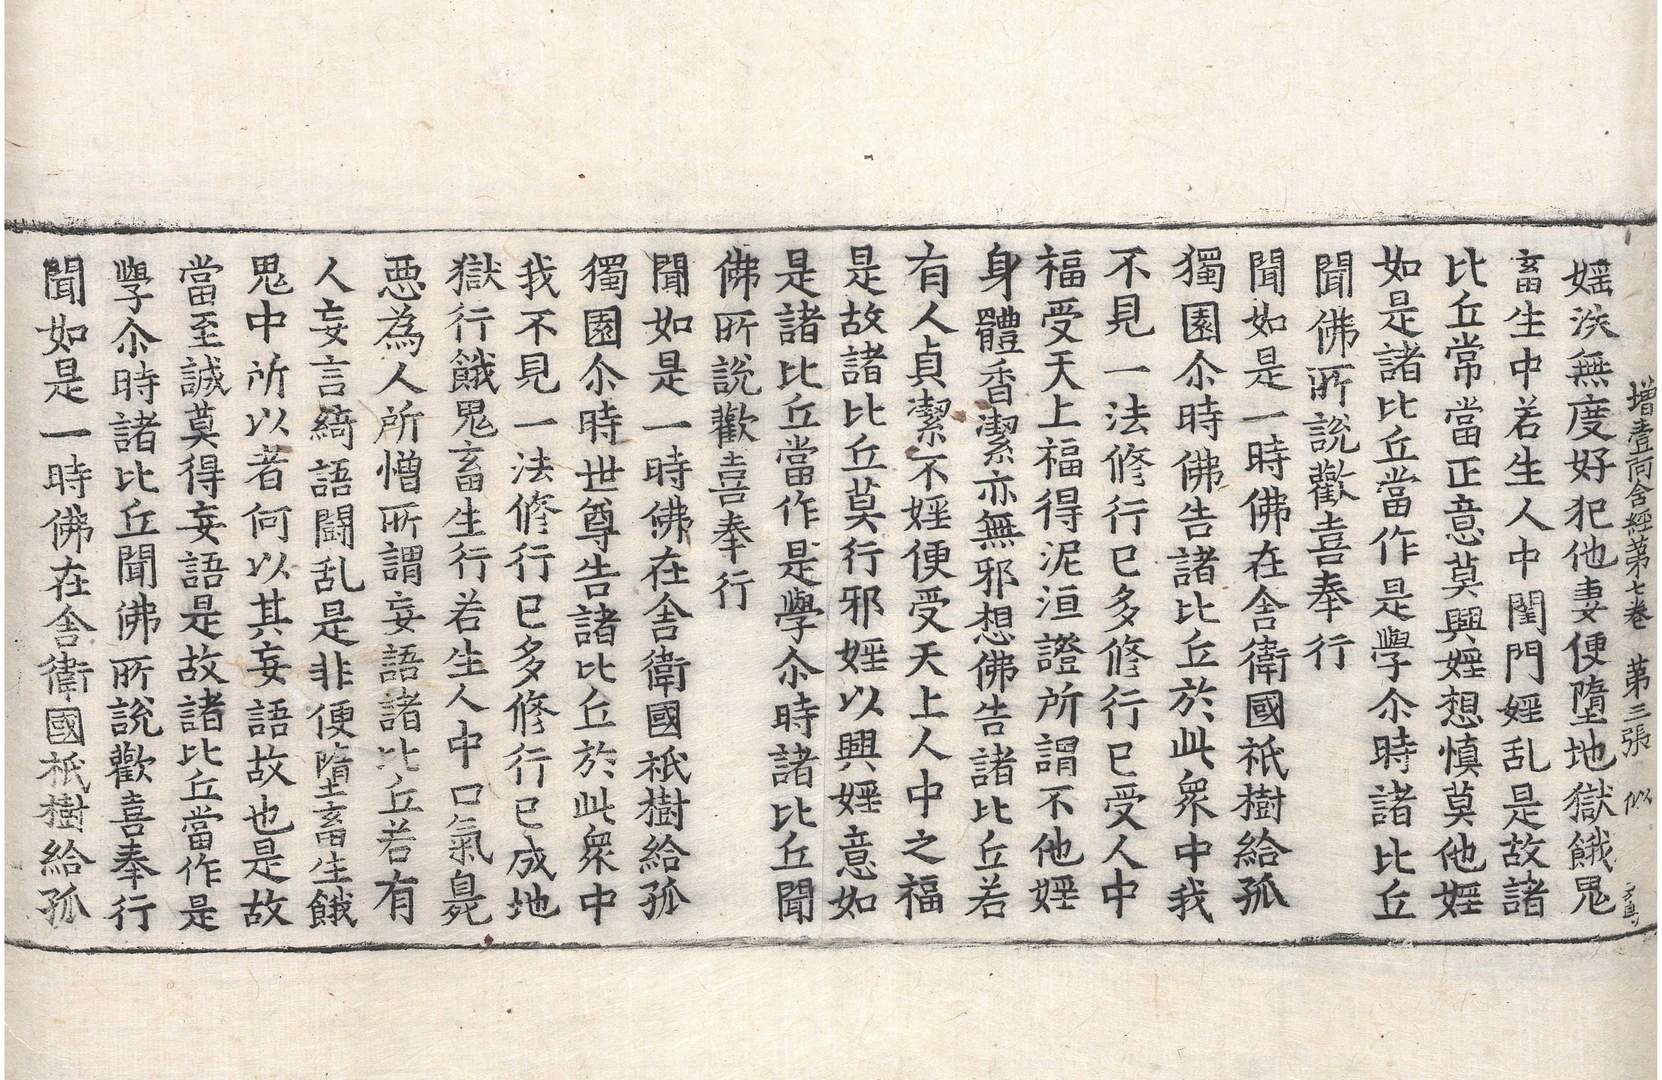 增壹阿含經第七卷　第三張　似
婬泆無度好犯他妻便墮地獄餓鬼
畜生中若生人中閨門婬乱是故諸
比丘常當正意莫興婬想慎莫他婬
如是諸比丘當作是學尒時諸比丘
聞佛所說歡喜奉行
聞如是一時佛在舍衛國祇樹給孤
獨園尒時佛告諸比丘於此眾中我
不見一法修行已多修行已受人中
福受天上福得泥洹證所謂不他婬
身體香潔亦無邪想佛告諸比丘若
有人貞潔不婬便受天上人中之福
是故諸比丘莫行邪婬以興婬意如
是諸比丘當作是學尒時諸比丘聞
佛所說歡喜奉行
聞如是一時佛在舍衛國祇樹給孤
獨園尒時世尊告諸比丘於此眾中
我不見一法修行已多修行已成地
獄行餓鬼畜生行若生人中口氣臭
惡為人所憎所謂妄語諸比丘若有
人妄言綺語鬪乱是非便墮畜生餓
鬼中所以者何以其妄語故也是故
當至誠莫得妄語是故諸比丘當作是
學尒時諸比丘聞佛所說歡喜奉行
聞如是一時佛在舍衛國祇樹給孤